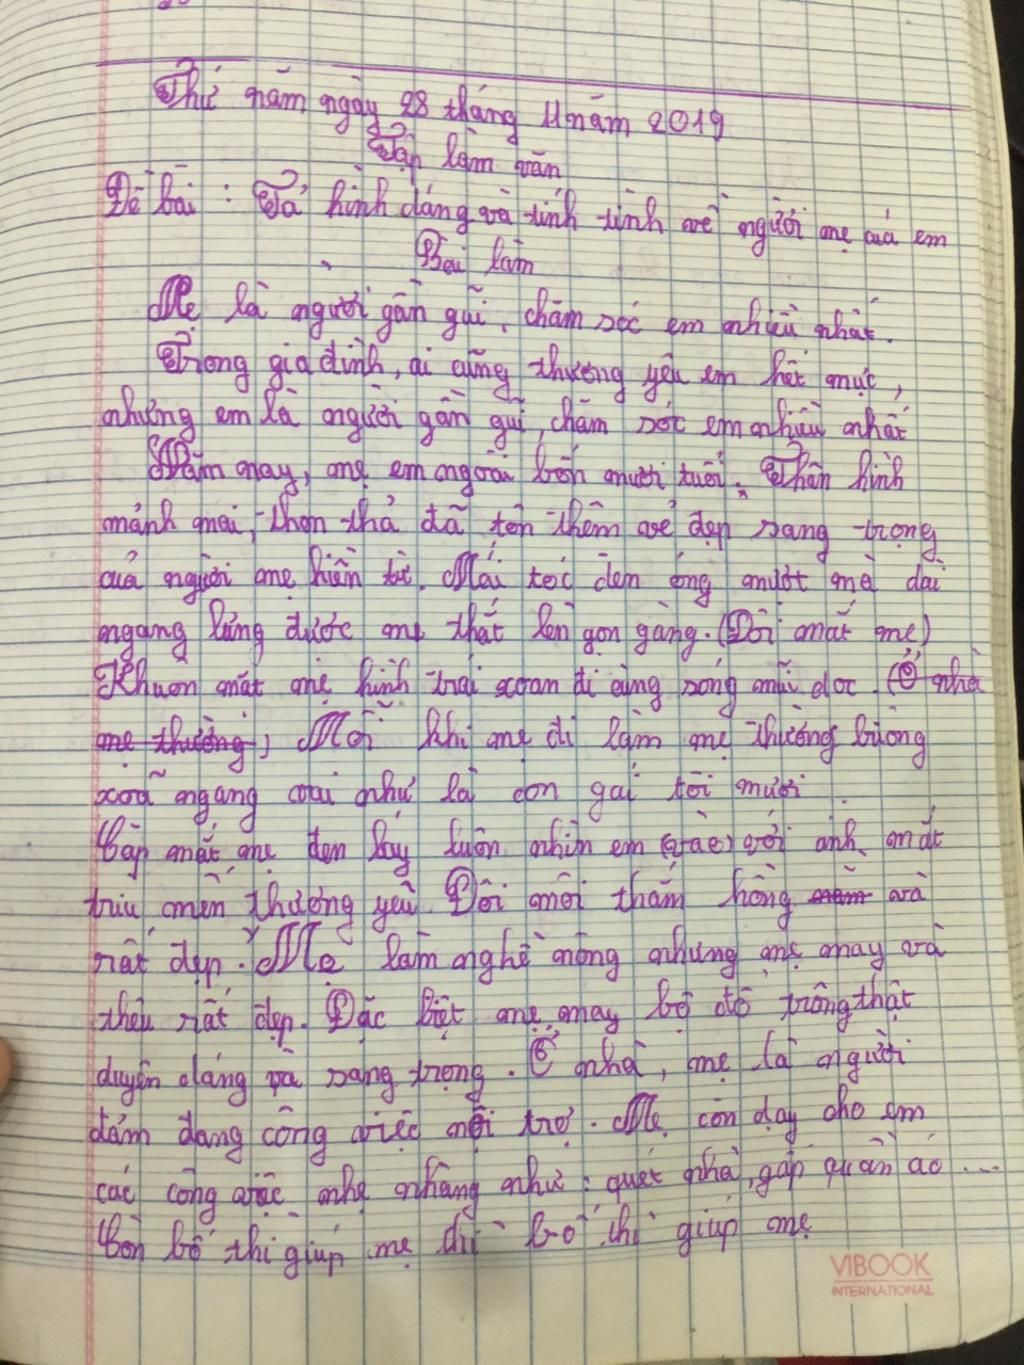 Thứ năm ngày 28 tháng 11 năm 2019
Tập làm văn
Đề bài : Tả hình dáng và tính tình về người mẹ của em
Bài làm
Mẹ là người gần gũi, chăm sóc em nhiều nhất.
Trong gia đình, ai cũng thương yêu em hết mực,
nhưng em là người gần gũi, chăm sóc em nhiều nhất
Năm nay, mẹ em ngoài bốn mươi tuổi. Thân hình
mảnh mai, thon thả đã tôn thêm vẻ đẹp sang trọng
của người mẹ hiền từ. Mái tóc đen óng mượt mà dài
ngang lưng được mẹ thắt lên gọn gàng. (Đôi mắt mẹ)
Khuôn mặt mẹ hình trái xoan đi cùng sóng mũi dọc. (Ở nhà
mẹ thường) Mỗi khi mẹ đi làm mẹ thường buông
xoã ngang vai như là con gái tôi mươi
Cặp mắt mẹ đen láy luôn nhìn em (vào) với ánh mắt
trìu mến thương yêu. Đôi môi thắm hồng và
rất đẹp. Mẹ làm nghề nông nhưng mẹ may và
thêu rất đẹp. Đặc biệt mẹ may bộ đồ trông thật
duyên dáng và sang trọng. Ở nhà, mẹ là người
đảm đang công việc nội trợ. Mẹ còn dạy cho em
các công việc nhẹ nhàng như : quét nhà, gấp quần áo ...
Còn bố thì giúp mẹ bố thì giúp mẹ
VIBOOK
INTERNATIONAL